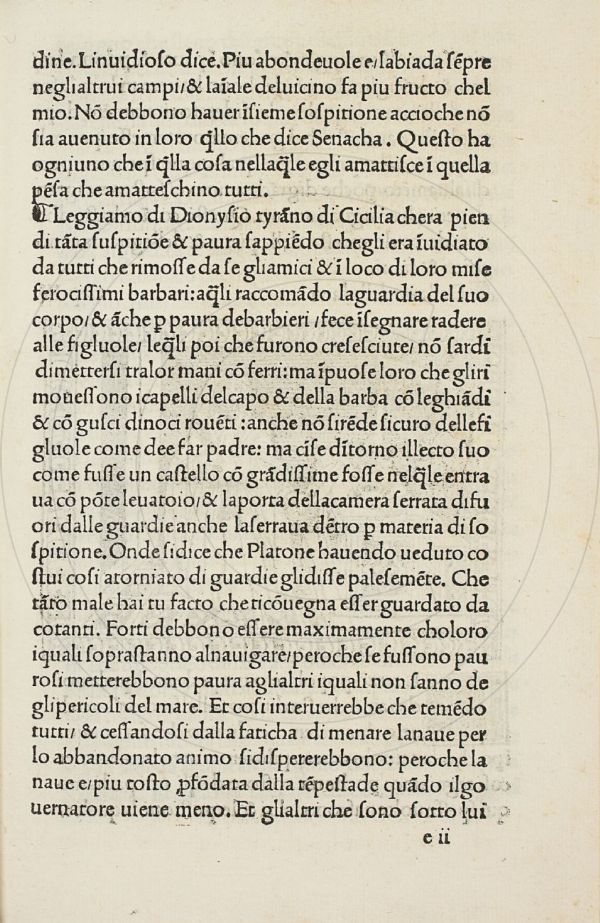 dine. Linuidioso dice. Piu abondeuole e/ſabiada ſēpre
neglialtrui campi/& laiale deluicino fa piu fructo chel
mio. Nō debbono hauer īſieme ſoſpitione accioche nō
ſia auenuto in loro q̄llo che dice Senacha. Queſto ha
ogniuno che ī q̄lla coſa nellaq̄le egli amattiſce ī quella
pēſa che amatteſchino tutti.
¶ Leggiamo di Dionyſio tyrāno di Cicilia chera pien
di tāta ſuſpitiōe & paura ſappiēdo chegli era īuidiato
da tutti che rimoſſe da ſe gliamici & ī loco di loro miſe
ferociſſimi barbari: aq̄li raccomādo laguardia del ſuo
corpo/ & āche ꝑ paura debarbieri /fece īſegnare radere
alle figluole/ leq̄li poi che furono creſeſciute/ nō ſardī
dimetterſi tralor mani cō ferri: ma īpuoſe loro che gliri
moueſſono icapelli delcapo & della barba cō leghiādi
& cō guſci dinoci rouēti :anche nō ſirēde ſicuro dellefi
gluole come dee far padre: ma cīſe dītorno illecto ſuo
come fuſſe un caſtello cō grādiſſime foſſe nelq̄le entra
ua cō pōte leuatoio/& laporta dellacamera ſerrata difu
ori dalle guardie anche laſerraua dētro ꝑ materia di ſo
ſpitione. Onde ſidice che Platone hauendo ueduto co
ſtui coſi atorniato di guardie glidiſſe paleſemēte. Che
tāto male hai tu facto che ticōuegna eſſer guardato da
cotanti. Forti debbono eſſere maximamente choloro
iquali ſopraſtanno alnauigare/peroche ſe fuſſono pau
roſi metterebbono paura aglialtri iquali non ſanno de
glipericoli del mare. Et coſi interuerrebbe che temēdo
tutti/ & ceſſandoſi dalla faticha di menare lanaue per
lo abbandonato animo ſidiſpererebbono: peroche la
naue e/piu toſto ꝓfōdata dalla tēpeſtade quādo ilgo
uernatore uiene meno. Et glialtri che ſono ſotto lui
e ii